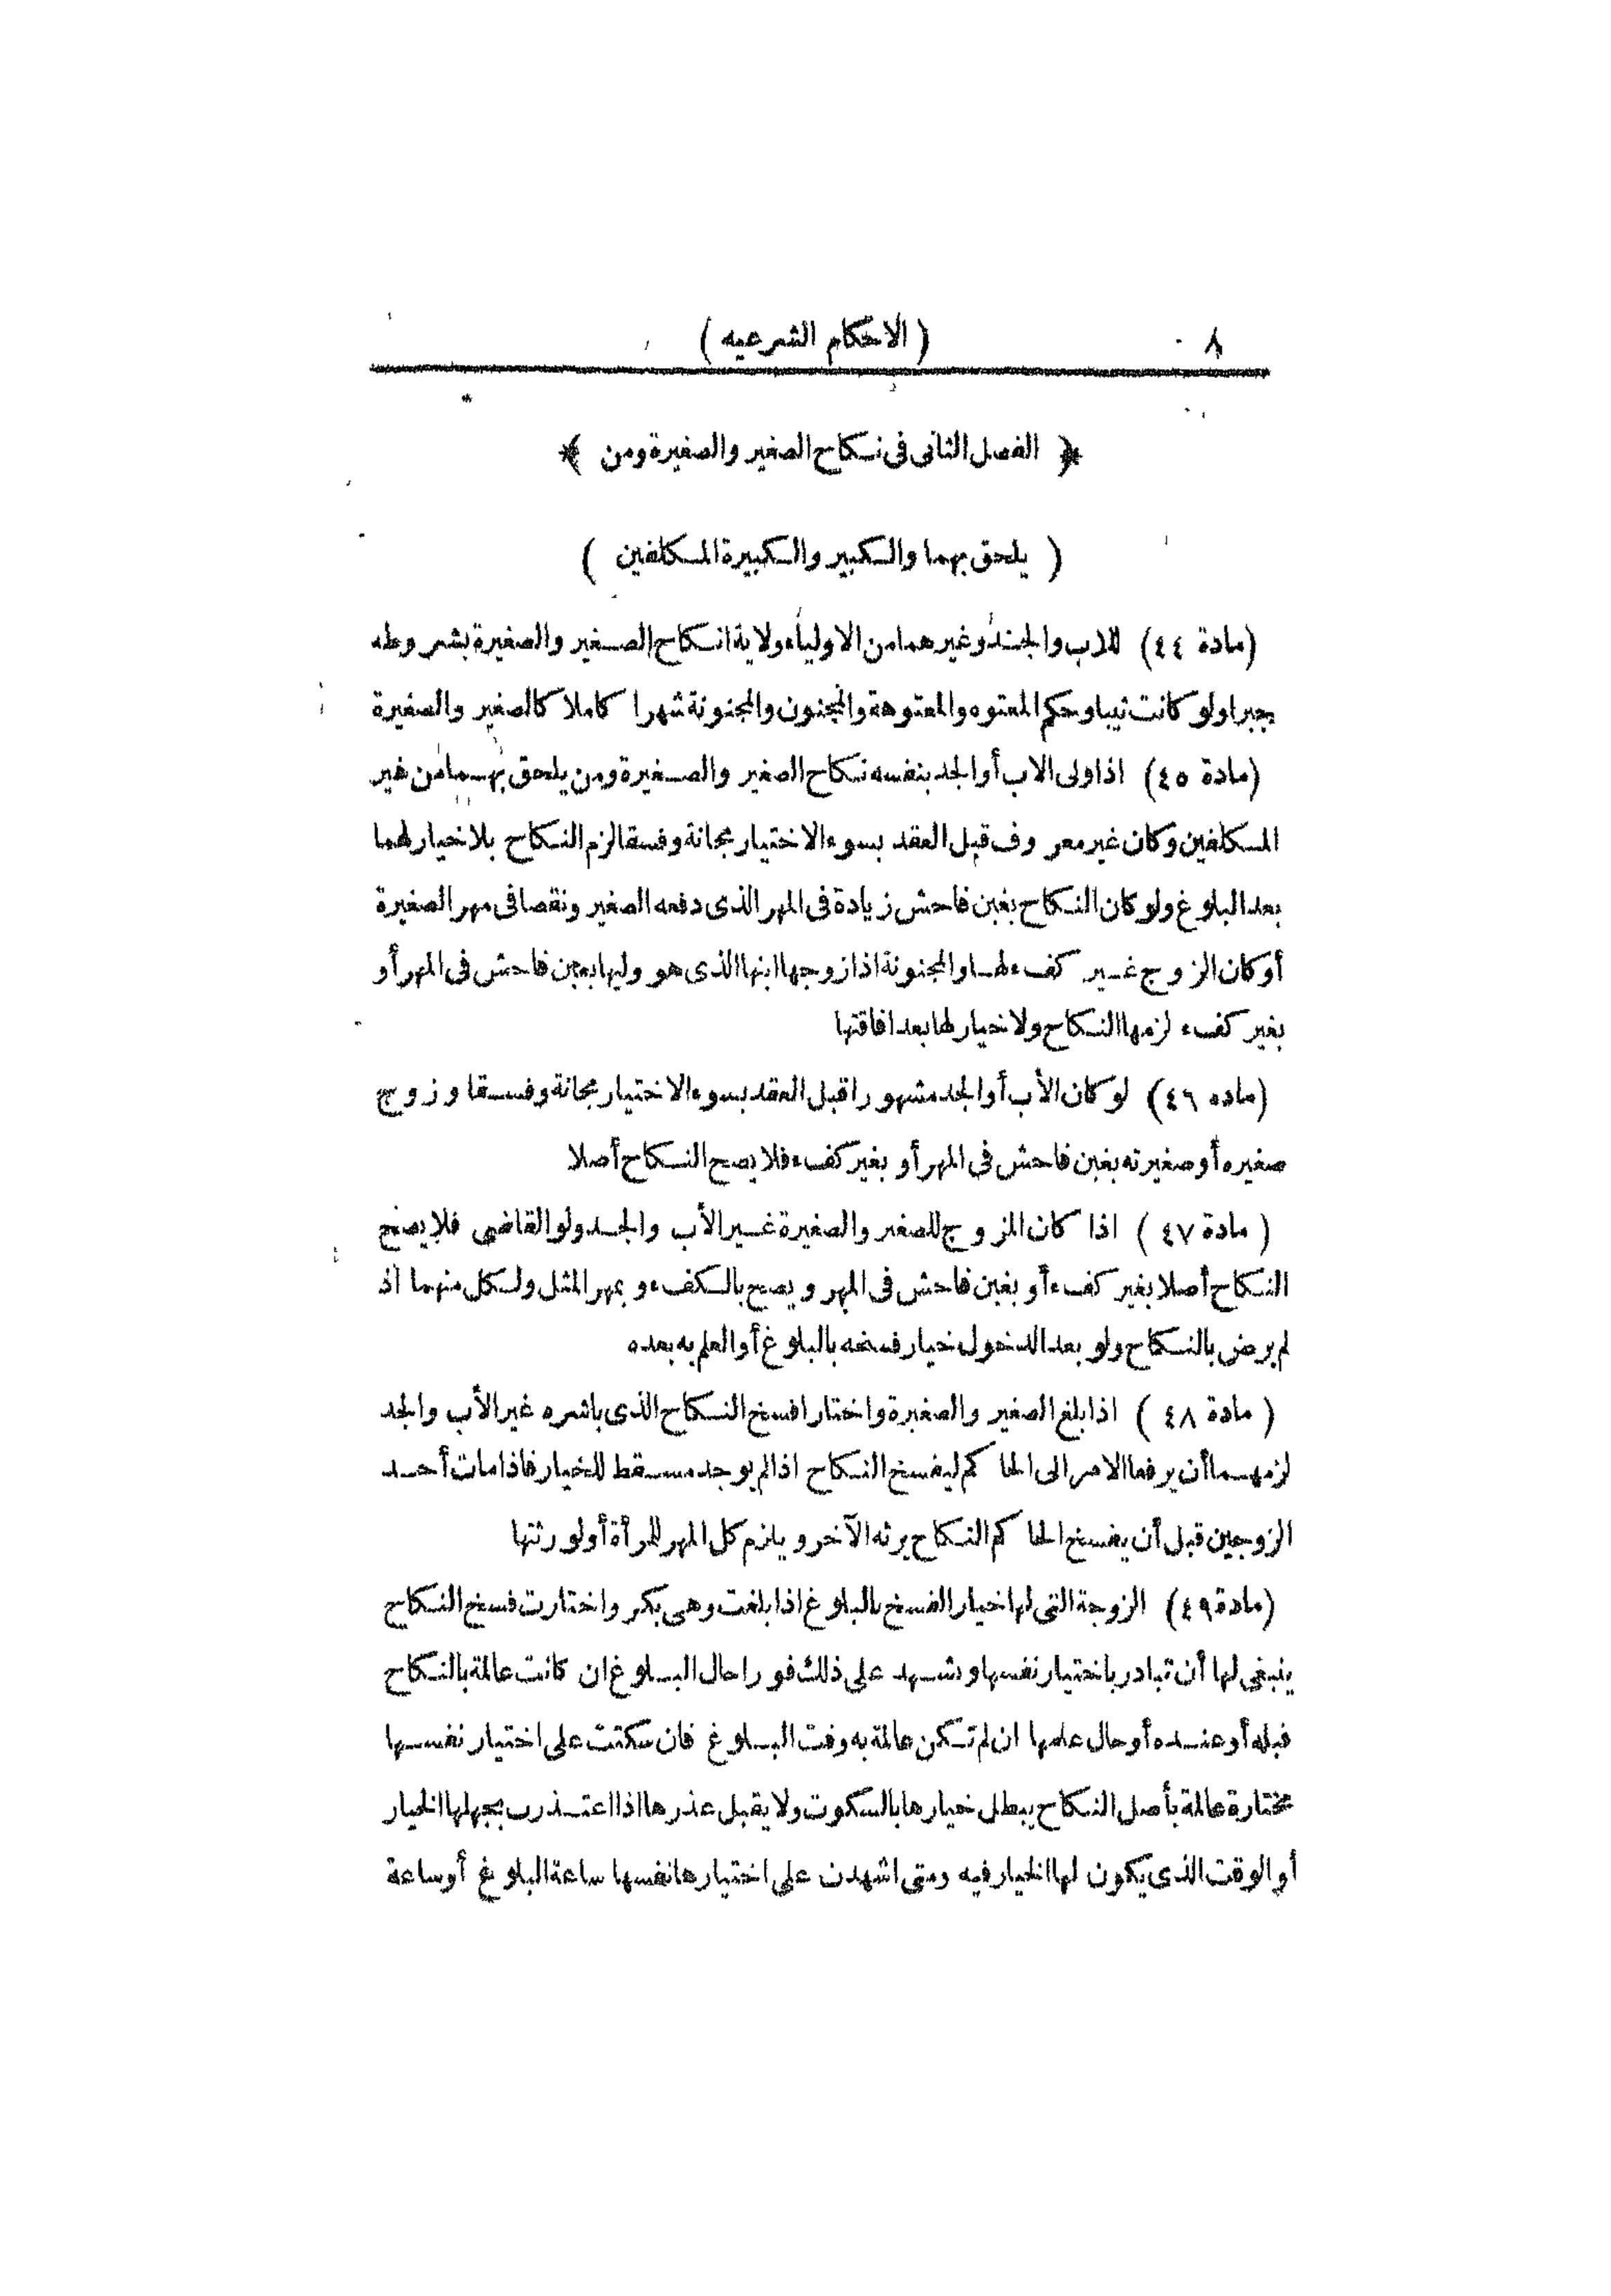 ٨ ( الاحكام الشرعيه )
﴿ الفصل الثانى فى نكاح الصغير والصغيرة ومن ﴾
( يلحق بهما والكبير والكبيرة المكلفين )
(مادة ٤٤) للاب والجد وغيرهما من الاولياء ولاية انكاح الصغير والصغيرة بشروطه
جبرا ولو كانت ثيبا وحكم المعتوه والمعتوهة والمجنون والمجنونة شهرا كاملا كالصغير والصغيرة
(مادة ٤٥) اذا ولى الاب أو الجد بنفسه نكاح الصغير والصغيرة ومن يلحق بهما من غير
المكلفين وكان غير معروف قبل العقد بسوء الاختيار مجانة وفسقا لزم النكاح بلا خيار لهما
بعد البلوغ ولو كان النكاح بغبن فاحش زيادة فى المهر الذى دفعه الصغير ونقصا فى مهر الصغيرة
أو كان الزوج غير كفء لها والمجنونة اذا زوجها ابنها الذى هو وليها بغبن فاحش فى المهر أو
بغير كفء لزمها النكاح ولا خيار لها بعد افاقتها
(ماده ٤٦) لو كان الأب أو الجد مشهورا قبل العقد بسوء الاختيار مجانة وفسقا وزوج
صغيره أو صغيرته بغبن فاحش فى المهر أو بغير كفء فلا يصح النكاح أصلا
( مادة ٤٧ ) اذا كان المزوج للصغير والصغيرة غير الأب والجد ولو القاضى فلا يصح
النكاح أصلا بغير كفء أو بغبن فاحش فى المهر ويصح بالكفء وبمهر المثل ولكل منهما اذ
لم يرض بالنكاح ولو بعد الدخول خيار فسخه بالبلوغ أو العلم به بعده
( مادة ٤٨ ) اذا بلغ الصغير والصغيرة واختارا فسخ النكاح الذى باشره غير الأب والجد
لزمهما أن يرفعا الامر الى الحاكم ليفسخ النكاح اذا لم يوجد مسقط للخيار فاذا مات أحد
الزوجين قبل أن يفسخ الحاكم النكاح يرثه الآخر ويلزم كل المهر للمرأة أو لورثتها
(مادة ٤٩) الزوجة التى لها خيار الفسخ بالبلوغ اذا بلغت وهى بكر واختارت فسخ النكاح
ينبغى لها أن تبادر باختيار نفسها وتشهد على ذلك فورا حال البلوغ ان كانت عالمة بالنكاح
قبله أو عنده أو حال علمها ان لم تكن عالمة به وقت البلوغ فان سكتت على اختيار نفسها
مختارة عالمة بأصل النكاح يبطل خيارها بالسكوت ولا يقبل عذرها اذا اعتذرت بجهلها الخيار
أو الوقت الذى يكون لها الخيار فيه ومتى اشهدت على اختيارها نفسها ساعة البلوغ أو ساعة